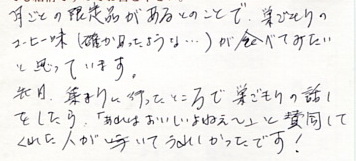 月ごとの限定品があるとのことで、巣ごもりの
コーヒー味(確かあったような…)が食べてみたい
と思っています。
先日、集まりに行ったところで巣ごもりの話し
をしたら、「あれはおいしいよねえ〜」と賛同して
くれた人がいてうれしかったです!